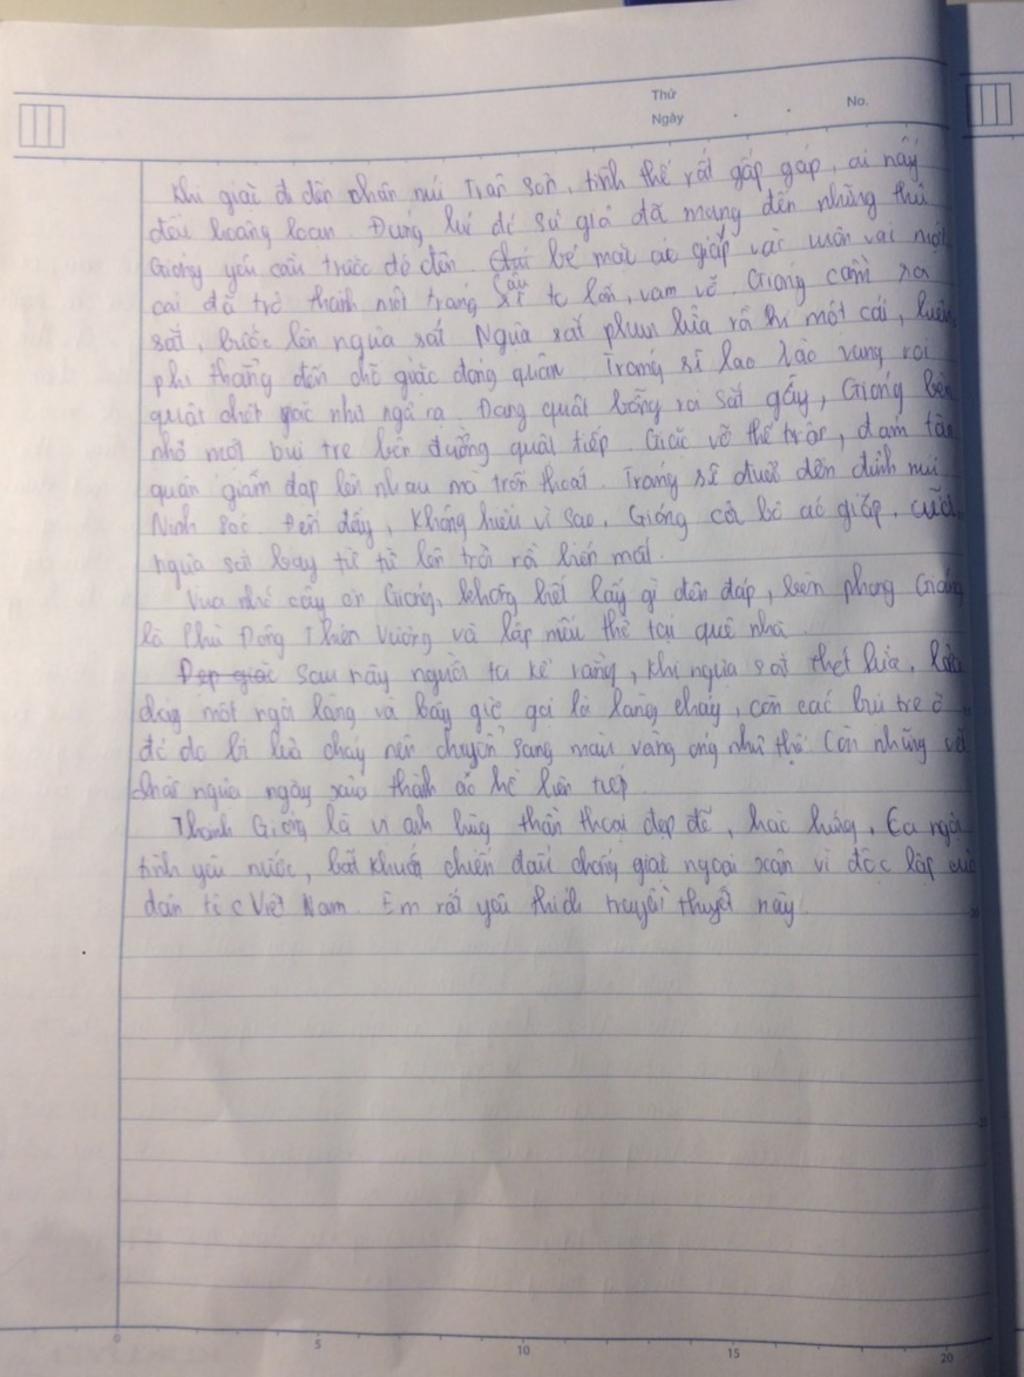 Thứ
Ngày
No.
Khi giặc đi đến chân núi Trâu Sơn, tình thế rất gấp gáp, ai nấy
đều hoảng loạn. Đúng lúc đó sứ giả đã mang đến những thứ
Gióng yêu cầu trước đó đến. Cậu bé mặc áo giáp vào vươn vai một
cái đã trở thành một tráng sĩ to lớn, vạm vỡ. Gióng cầm roi
sắt, bước lên ngựa sắt. Ngựa sắt phun lửa rồi hí một cái, luền
phi thẳng đến chỗ giặc đóng quân. Tráng sĩ lao vào vung roi
quật chết giặc như ngả rạ. Đang quật bỗng roi sắt gãy, Gióng bèn
nhổ một bụi tre bên đường quật tiếp. Giặc vỡ thế trận, đám tàn
quân giẫm đạp lên nhau mà trốn thoát. Tráng sĩ đuổi đến đỉnh núi
Ninh Sóc. Đến đấy, không hiểu vì sao, Gióng cởi bỏ áo giáp, cưỡi
ngựa sắt bay từ từ lên trời rồi biến mất.
Vua nhớ công ơn Gióng, không biết lấy gì đền đáp, liền phong Gióng
là Phù Đổng Thiên Vương và lập miếu thờ tại quê nhà.
Dẹp giặc Sau này người ta kể rằng, khi ngựa sắt thét lửa, lửa
cháy một ngôi làng và bây giờ gọi là làng cháy, còn các bụi tre ở
đó do bị lửa cháy nên chuyển sang màu vàng óng như thế. Còn những vết
chân ngựa ngày xưa thành ao hồ liên tiếp.
Thánh Gióng là vị anh hùng thần thoại đẹp đẽ, hào hùng. Ca ngợi
tình yêu nước, bất khuất chiến đấu chống giặc ngoại xâm vì độc lập của
dân tộc Việt Nam. Em rất yêu thích truyền thuyết này.
0
5
10
15
20